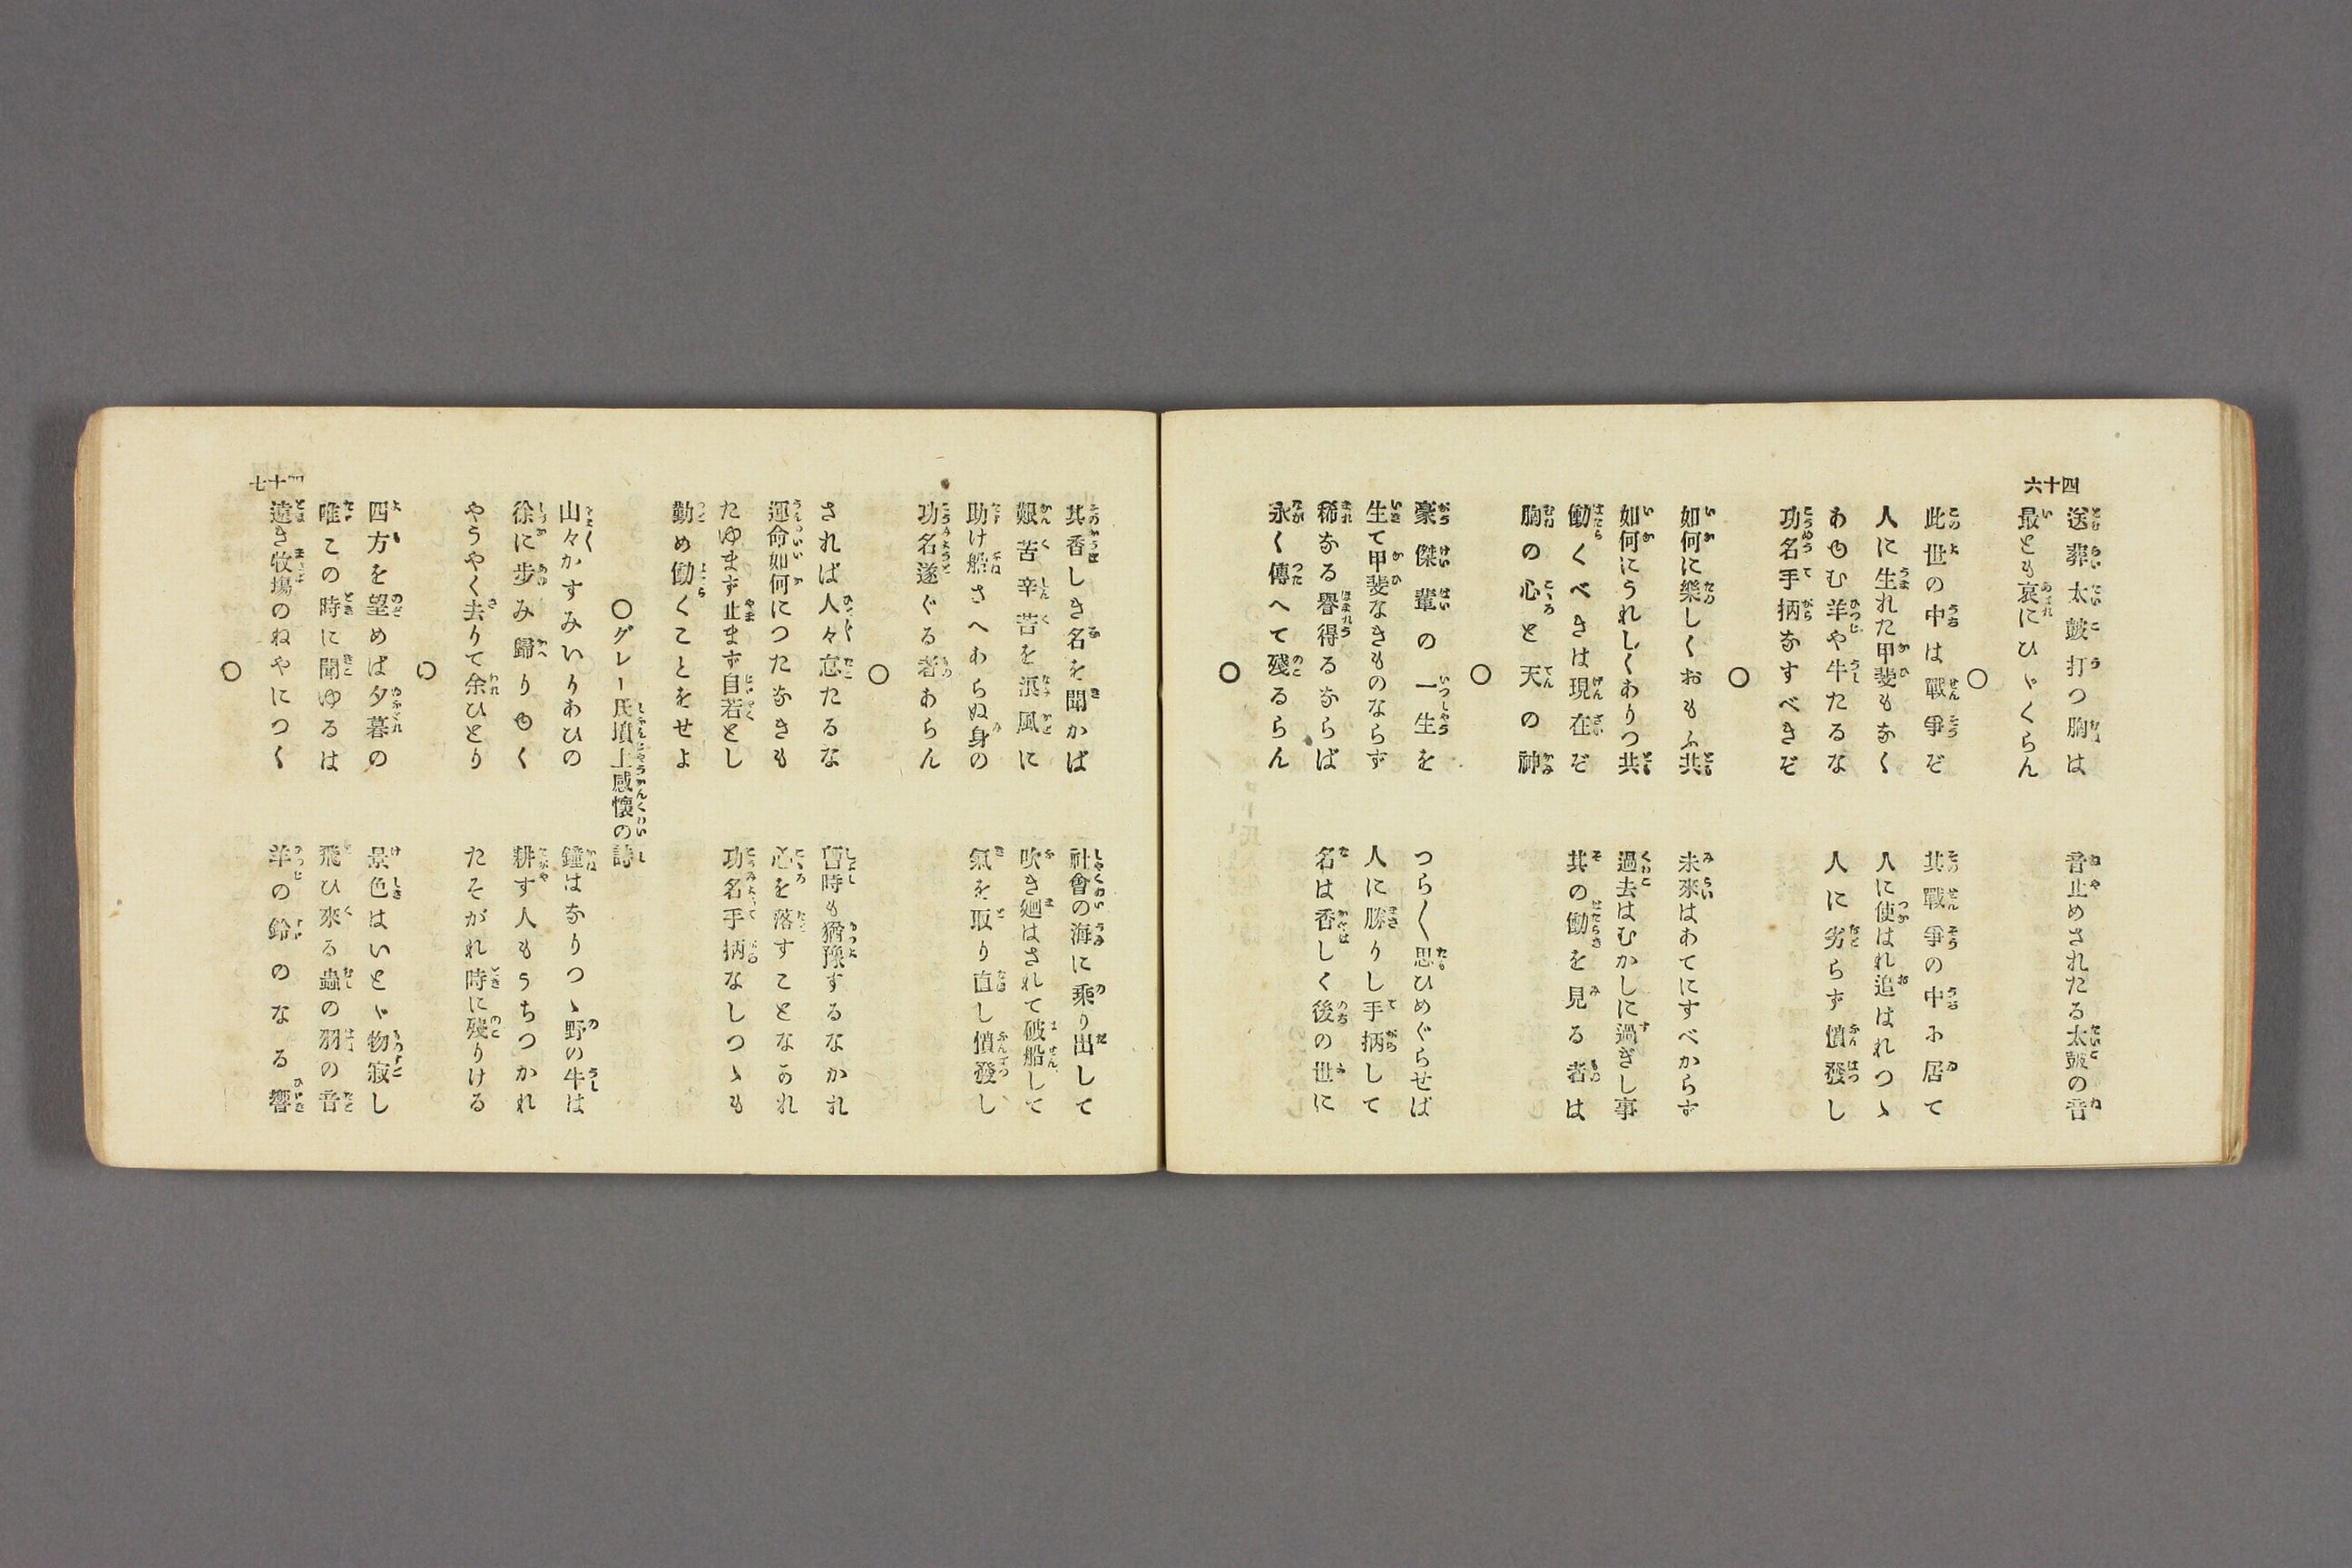 四十六
送葬太皷打つ胸は　音止めされたる太皷の音
最とも哀にひゞくらん
〇
此世の中は戰爭ぞ　其戰爭の中に居て
人に生れた甲斐もなく　人に使はれ追はれつゝ
あゆむ羊や牛たるな　人に劣らず憤發し
功名手柄なすべきぞ
〇
如何に樂しくおもふ共　未來はあてにすべからず
如何にうれしくありつ共　過去はむかしに過ぎし事
働くべきは現在ぞ　其の働を見る者は
胸の心と天の神
〇
豪傑輩の一生を　つら〱思ひめぐらせば
生て甲斐なきものならず　人に勝りし手柄して
稀なる譽得るならば　名は香しく後の世に
永く傳へて殘るらん
〇
其香しき名を聞かば　社會の海に乘り出して
艱苦辛苦を浪風に　吹き廻はされて破船して
助け船さへあらぬ身の　氣を取り直し憤發し
功名遂ぐる者あらん
〇
されば人々怠たるな　暫時も猶豫するなかれ
運命如何につたなきも　心を落すことなかれ
たゆまず止まず自若とし　功名手柄なしつゝも
勤め働くことをせよ
〇グレー氏墳上感懷の詩
山々かすみいりあひの　鐘はなりつゝ野の牛は
徐に歩み歸りゆく　耕す人もうちつかれ
やうやく去りて余ひとり　たそがれ時に殘りける
〇
四方を望めば夕暮の　景色はいとゞ物寂し
唯この時に聞ゆるは　飛ひ來る蟲の羽の音
遠き牧塲のねやにつく　羊の鈴のなる響
〇
四十七